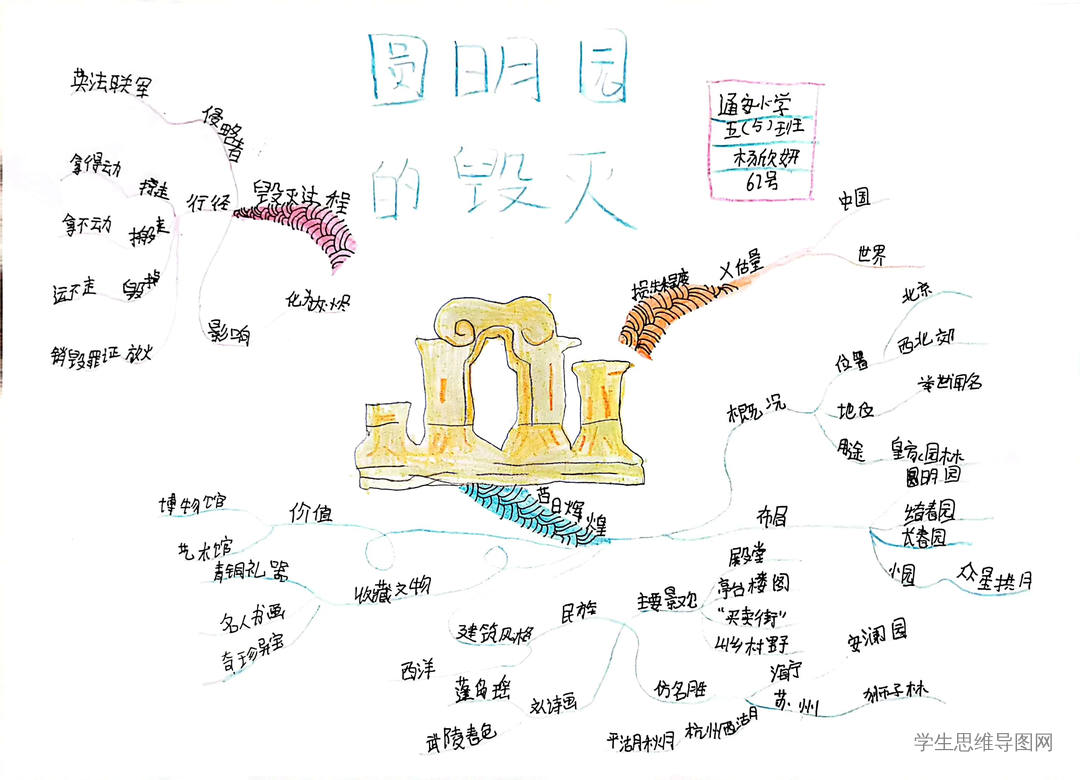 圆明园
的毁灭
通安小学
五(5)班
杨欣妍
62号
英法联军
侵略者
毁灭过程
行径
拿得动
掠走
拿不动
搬走
运不走
毁掉
销毁罪证
放火
影响
化为灰烬
损失程度
不可估量
中国
世界
昔日辉煌
概况
位置
北京
西北郊
地位
举世闻名
用途
皇家园林
布局
圆明园
绮春园
长春园
小园
众星拱月
主要景观
殿堂
亭台楼阁
“买卖街”
山乡村野
民族
建筑风格
西洋
仿名胜
海宁
安澜园
苏州
狮子林
杭州西湖
平湖秋月
从诗画
蓬岛瑶
武陵春色
收藏文物
青铜礼器
名人书画
奇珍异宝
价值
博物馆
艺术馆
学生思维导图网